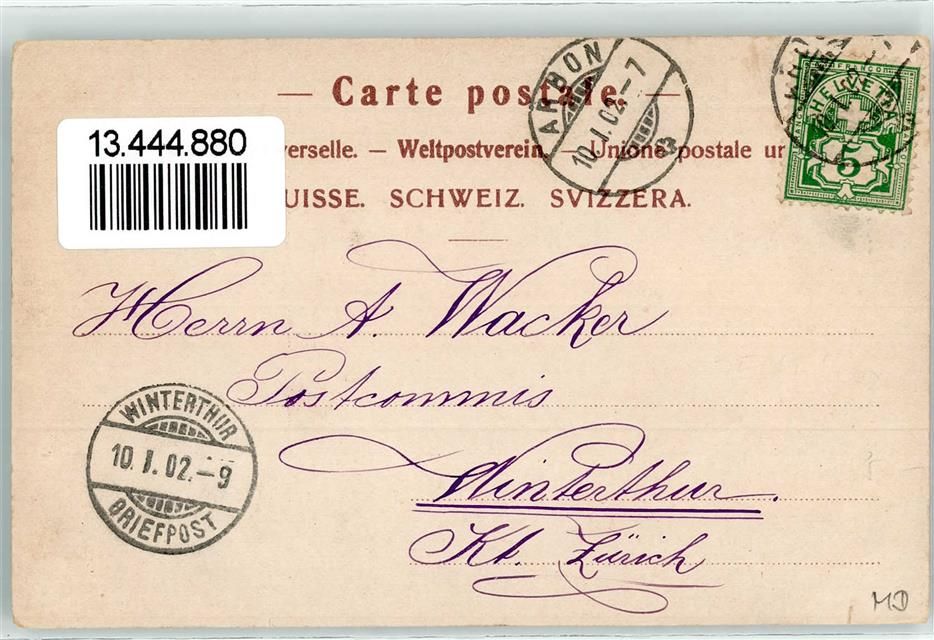 — Carte postale. —
13.444.880
verselle. — Weltpostverein. — Unione postale un
UISSE. SCHWEIZ. SVIZZERA.
ARBON
10.I.02.-7
FRANCO
HELVETIA
5
Herrn A. Wacker
Postcommis
Winterthur.
Kt. Zürich
WINTERTHUR
10.I.02.-9
BRIEFPOST
MD